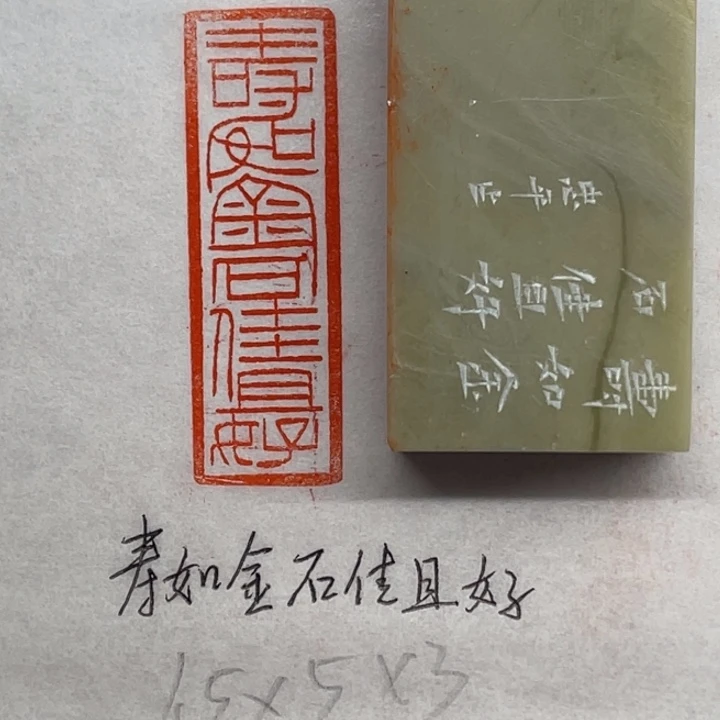 壽如金石佳且好
壽如金
石佳且好
忠平上
寿如金石佳且好
1.5×5×3